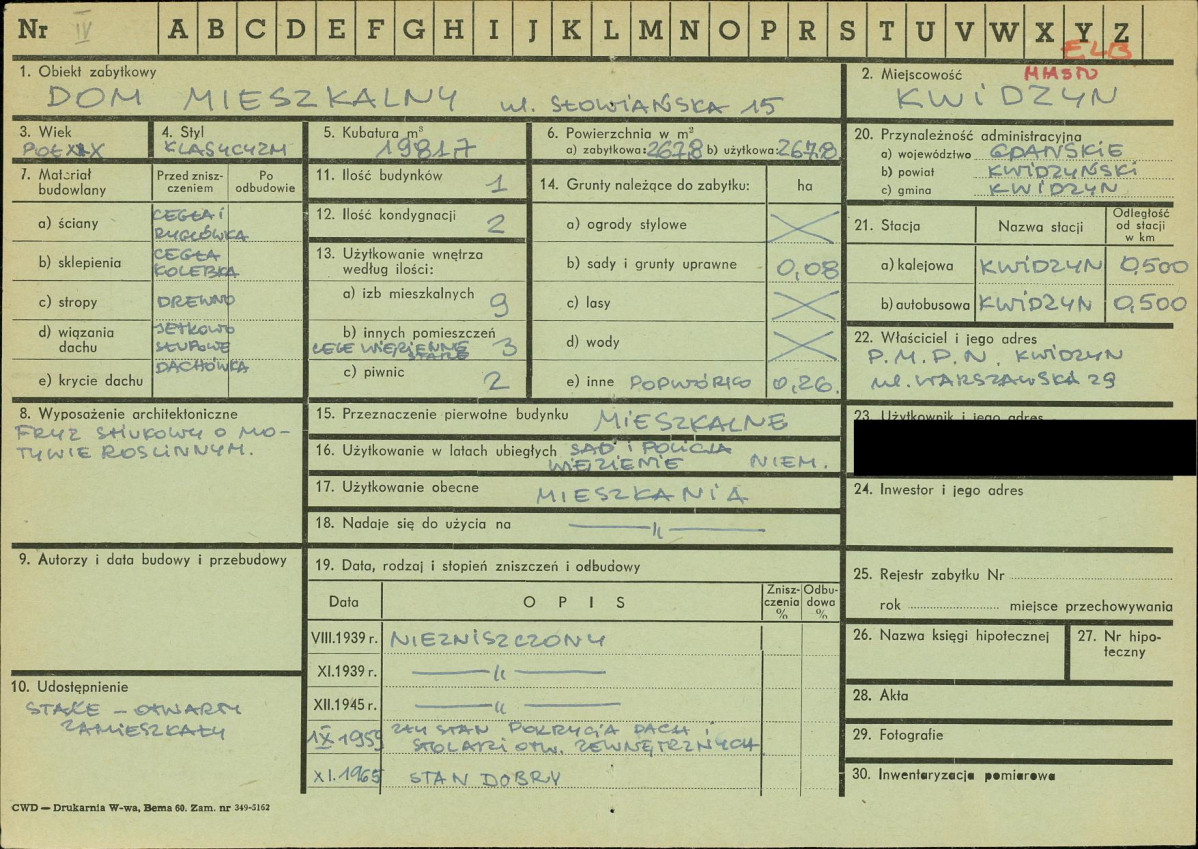 Nr IV A B C D E F G H I J K L M N O P R S T U V W X Y Z
ELB
1. Obiekt zabytkowy
DOM MIESZKALNY ul. SŁOWIAŃSKA 15
2. Miejscowość MIASTO
KWIDZYN
3. Wiek
POŁ XIX
4. Styl
KLASYCYZM
5. Kubatura m³
1981,7
6. Powierzchnia w m²
a) zabytkowa: 267.8 b) użytkowa: 267.8
20. Przynależność administracyjna
a) województwo GDAŃSKIE
b) powiat KWIDZYŃSKI
c) gmina KWIDZYN
7. Materiał budowlany
Przed zniszczeniem
Po odbudowie
a) ściany CEGŁA i
RYGLÓWKA
b) sklepienia CEGŁA
KOLEBKA
c) stropy DREWNO
d) wiązania dachu
SŁUPOWE
e) krycie dachu DACHÓWKA
11. Ilość budynków 1
12. Ilość kondygnacji 2
13. Użytkowanie wnętrza
według ilości:
a) izb mieszkalnych 9
b) innych pomieszczeń
CELE WIĘZIENNE
STARE 3
c) piwnic 2
14. Grunty należące do zabytku: ha
a) ogrody stylowe
b) sady i grunty uprawne 0,08
c) lasy
d) wody
e) inne PODWÓRKO 0,26.
21. Stacja
Nazwa stacji
Odległość
od stacji
w km
a) kolejowa KWIDZYN 0,500
b) autobusowa KWIDZYN 0,500
22. Właściciel i jego adres
P.M.R.N. KWIDZYN
ul. WARSZAWSKA 29
8. Wyposażenie architektoniczne
FRYZ STIUKOWY O MO-
TYWIE ROŚLINNYM.
15. Przeznaczenie pierwotne budynku MIESZKALNE
16. Użytkowanie w latach ubiegłych SĄD i POLICJA
WIĘZIENIE NIEM.
17. Użytkowanie obecne MIESZKANIA
18. Nadaje się do użycia na —〃—
23. Użytkownik i jego adres
24. Inwestor i jego adres
9. Autorzy i data budowy i przebudowy
19. Data, rodzaj i stopień zniszczeń i odbudowy
Data
OPIS
Znisz-
czenia
%
Odbu-
dowa
%
VIII.1939 r. NIEZNISZCZONY
XI.1939 r. —〃—
XII.1945 r. —〃—
IX 1959 ZŁY STAN POKRYCIA DACH i
STOLARKI OTW. ZEWNĘTRZNYCH
XI.1965 STAN DOBRY
10. Udostępnienie
STALE – OTWARTY
ZAMIESZKAŁY
25. Rejestr zabytku Nr
rok miejsce przechowywania
26. Nazwa księgi hipotecznej
27. Nr hipo-
teczny
28. Akta
29. Fotografie
30. Inwentaryzacja pomiarowa
CWD — Drukarnia W-wa, Bema 60. Zam. nr 349-5162